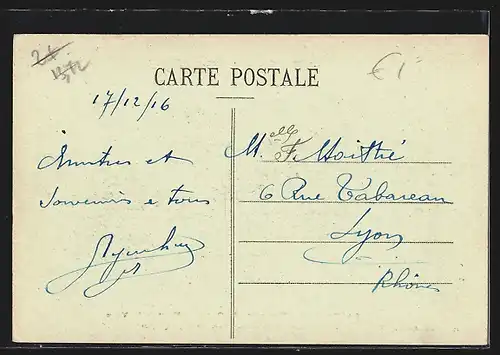 CARTE POSTALE
17/12/16
Amitiés et
souvenirs à tous
Melle F. Moitié
6 Rue Tabareau
Lyon
Rhône